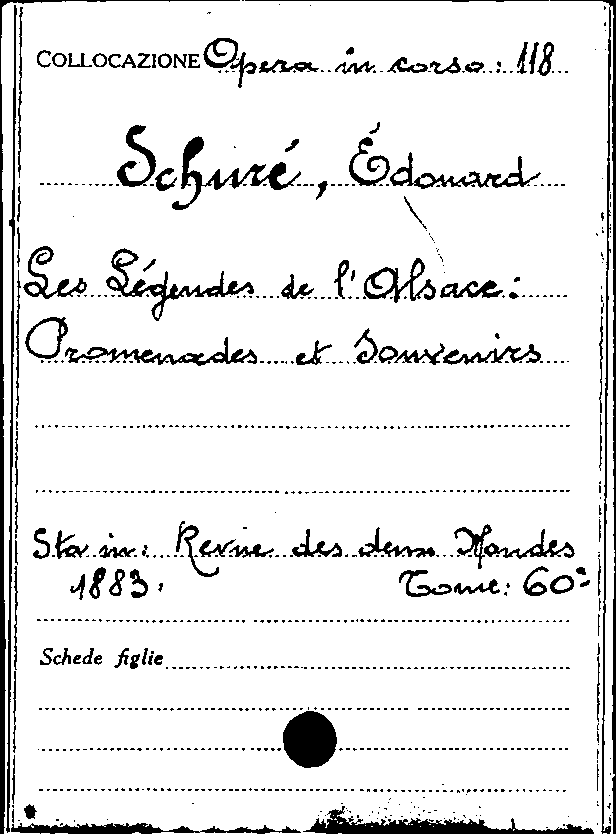 COLLOCAZIONE Opera in corso: 118
Schuré, Édouard
Les Légendes de l'Alsace:
Promenades et Souvenirs
Sta in: Revue des deux Mondes
1883. Tome: 60º
Schede figlie